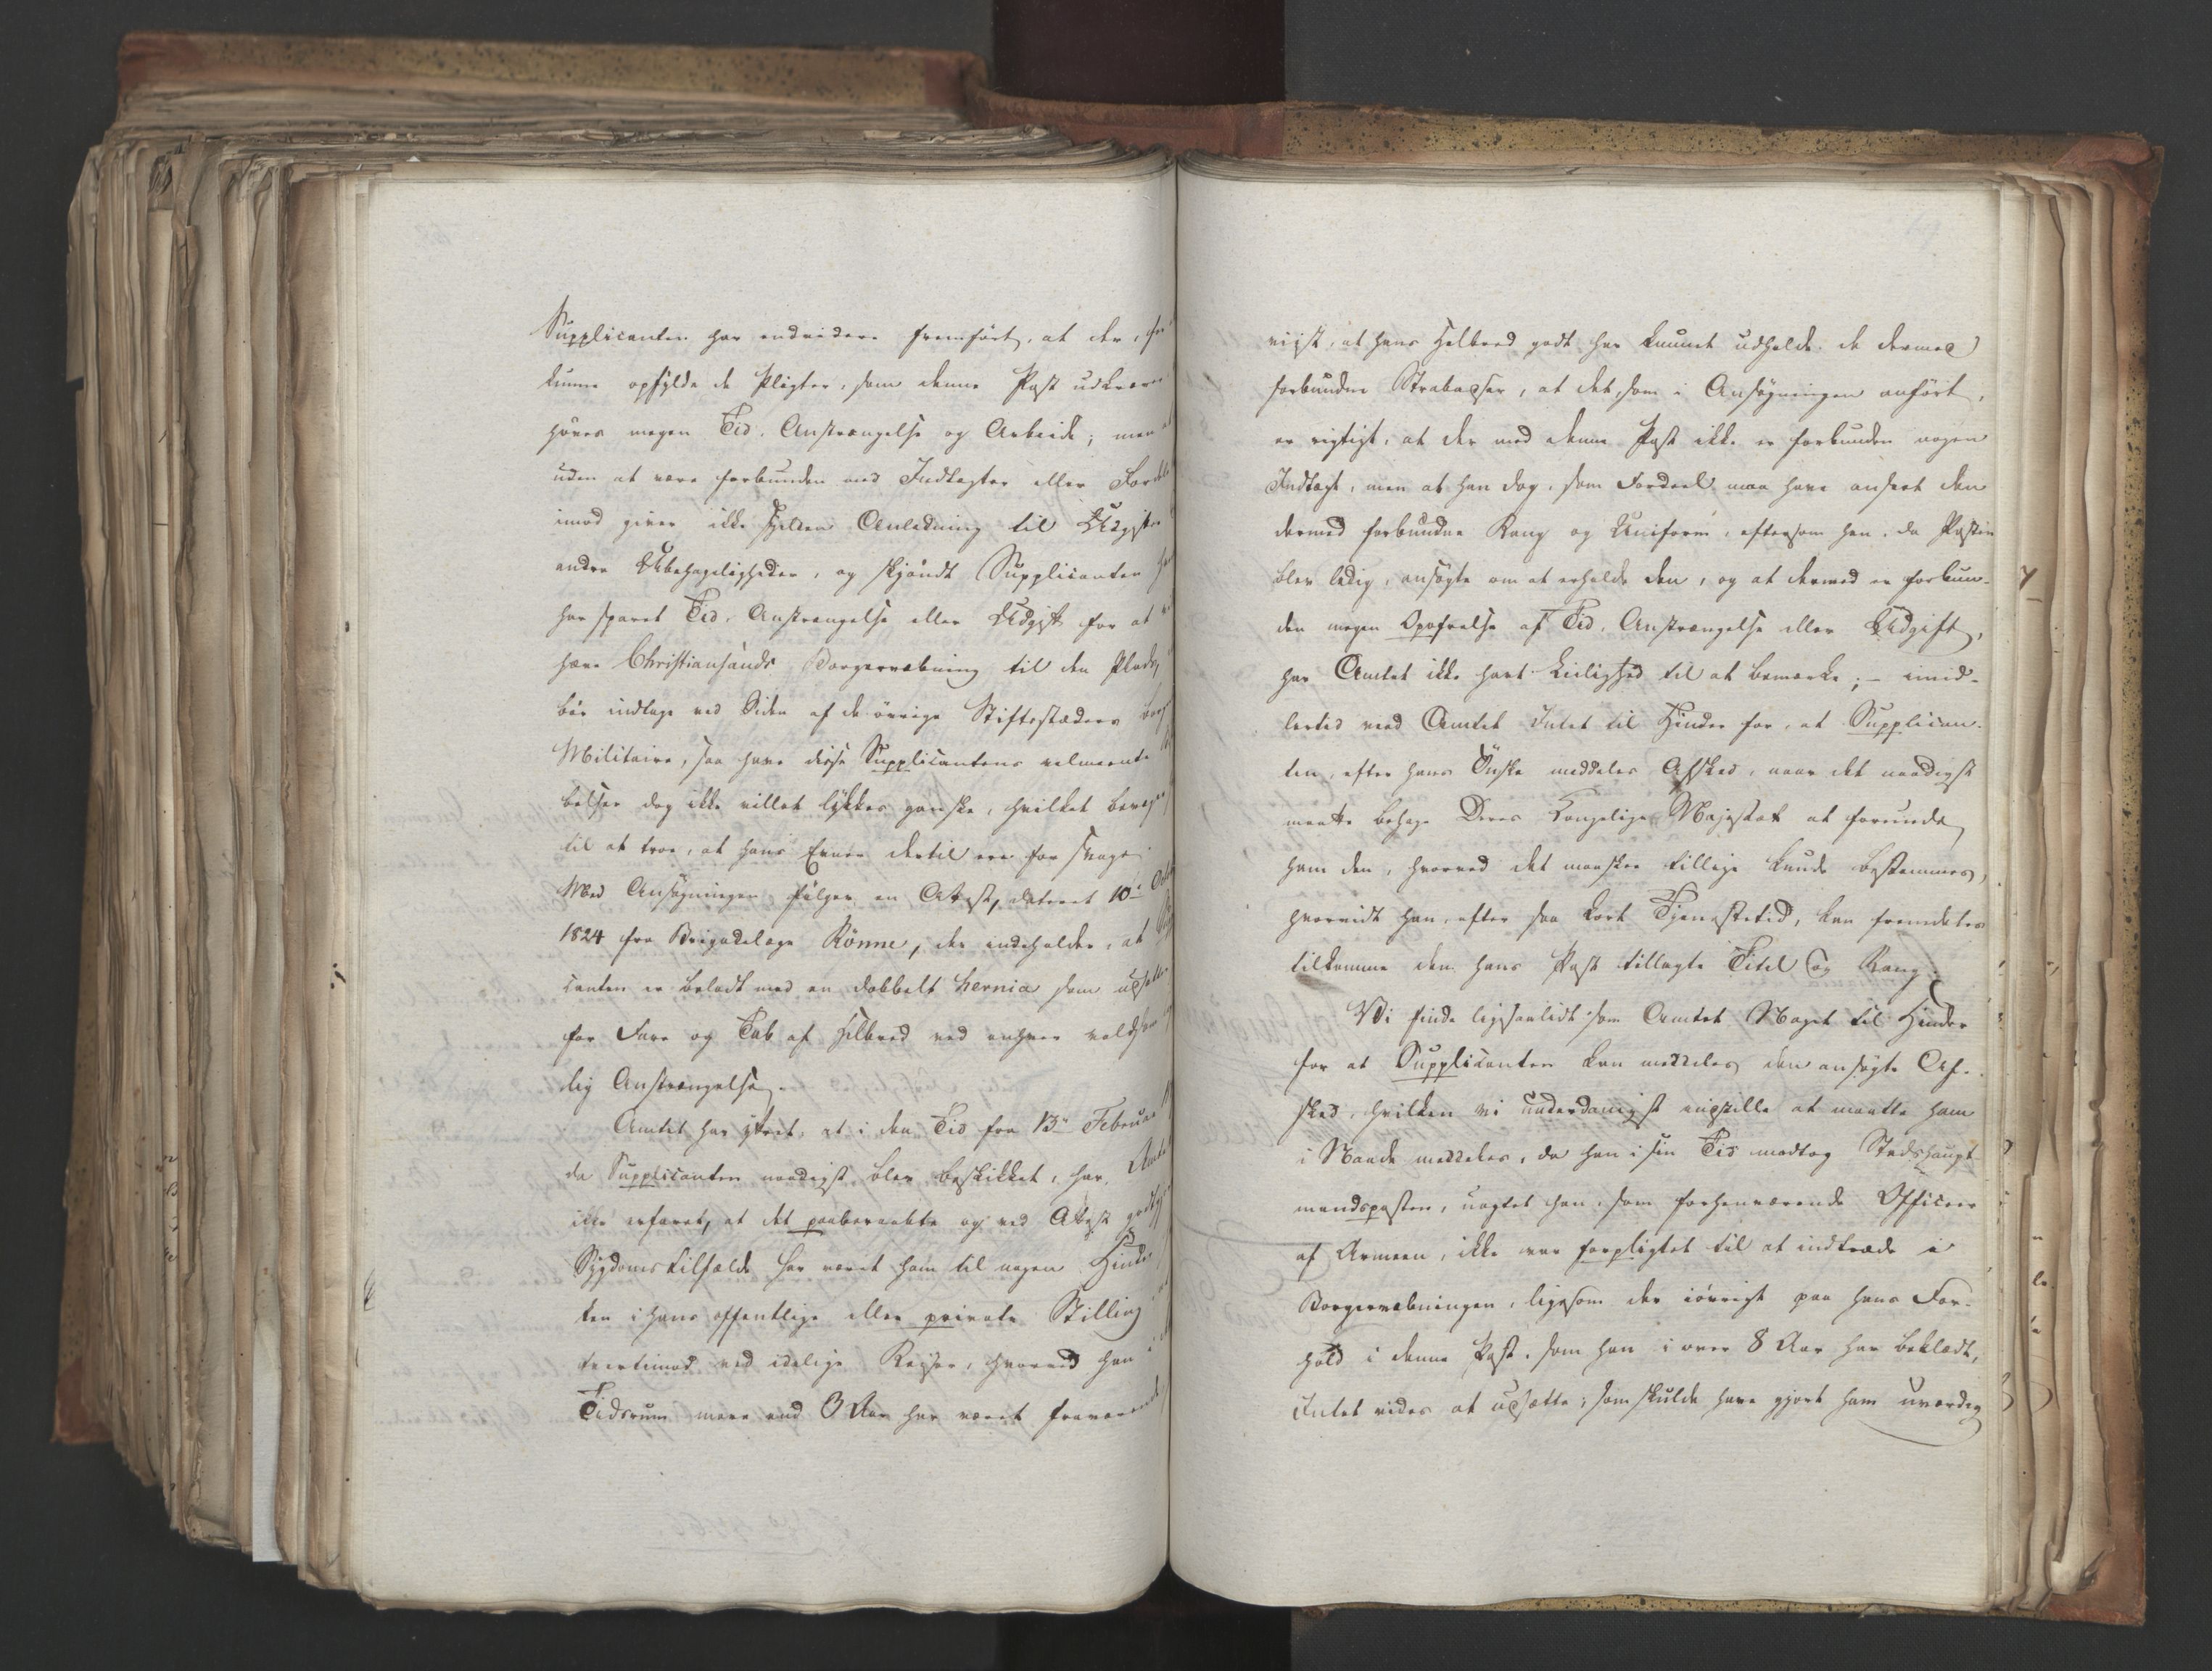 Supplicanten har endvidere fremført, at der, for
kunne opfylde de Pligter, som denne Post udkræver
høres megen Tid, Anstrængelse og Arbeide; men
uden at være forbunden med Indtægter eller Fordele
imod giver ikke sjelden Anledning til Udgifter
andre Ubehageligheder, og skjøndt Supplicanten
har sparet Tid, Anstrængelse eller Udgift for at
hæve Christiansands Borgervæbning til den Plads,
bør indtage ved Siden af de øvrige Stiftsstæders
Militaire, saa have disse Supplicantens velmeente
belser dog ikke villet lykkes ganske, hvilket
til at troe, at hans Evner dertil ere for svage.
Med Ansøgningen følger en Attest, dateret 10de
1824 fra Brigadelæge Rönne, der indeholder, at
canten er beladt med en dobbelt hernia som
for Fare og Tab af Helbred ved enhver
lig Anstrængelse.
Amtet har yttret, at i den Tid fra 13de Februar
da Supplicanten naadigst blev beskikket, har Amtet
ikke erfaret, at det paaberaabte og ved Attest
Sygdomstilfælde har været ham til nogen
ken i hans offentlige eller private Stilling
tvertimod ved idelige Reiser, hvorved han i
Tidsrum mere end 3 Aar har været fraværende,
viist, at hans Helbred godt har kunnet udholde de dermed
forbundne Strabadser, at det, som i Ansøgningen anført,
er rigtigt, at der med denne Post ikke er forbunden nogen
Indtægt, men at han dog, som Fordeel maa have anseet den
dermed forbundne Rang og Uniform, eftersom han, da Posten
blev ledig, ansøgte om at erholde den, og at dermed er forbun-
den megen Opofrelse af Tid, Anstrængelse eller Udgift,
har Amtet ikke havt Leilighed til at bemærke; – imid-
lertid veed Amtet Intet til Hinder for, at Supplican-
ten, efter hans Ønske meddeles Afsked, naar det naadigst
maatte behage Deres Kongelige Majestæt at forunde
ham den, hvorved det maaskee tillige kunde bestemmes,
hvorvidt han, efter saa kort Tjenestetid, kan fremdeles
tilkomme den hans Post tillagte Titel og Rang.
Vi finde ligesaalidt som Amtet Noget til Hinder
for at Supplicanten kan meddeles den ansøgte Af-
sked, hvilken vi underdanigst indstille at maatte ham
i Naade meddeles, da han i sin Tid modtog Stadshaupt-
mandsposten, uagtet han, som forhenværende Officeer
af Armeen, ikke var forpligtet til at indtræde i
Borgervæbningen, ligesom der iøvrigt paa hans For-
hold i denne Post, som han i over 8 Aar har beklædt,
Intet vides at udsætte, som skulde have gjort ham uværdig